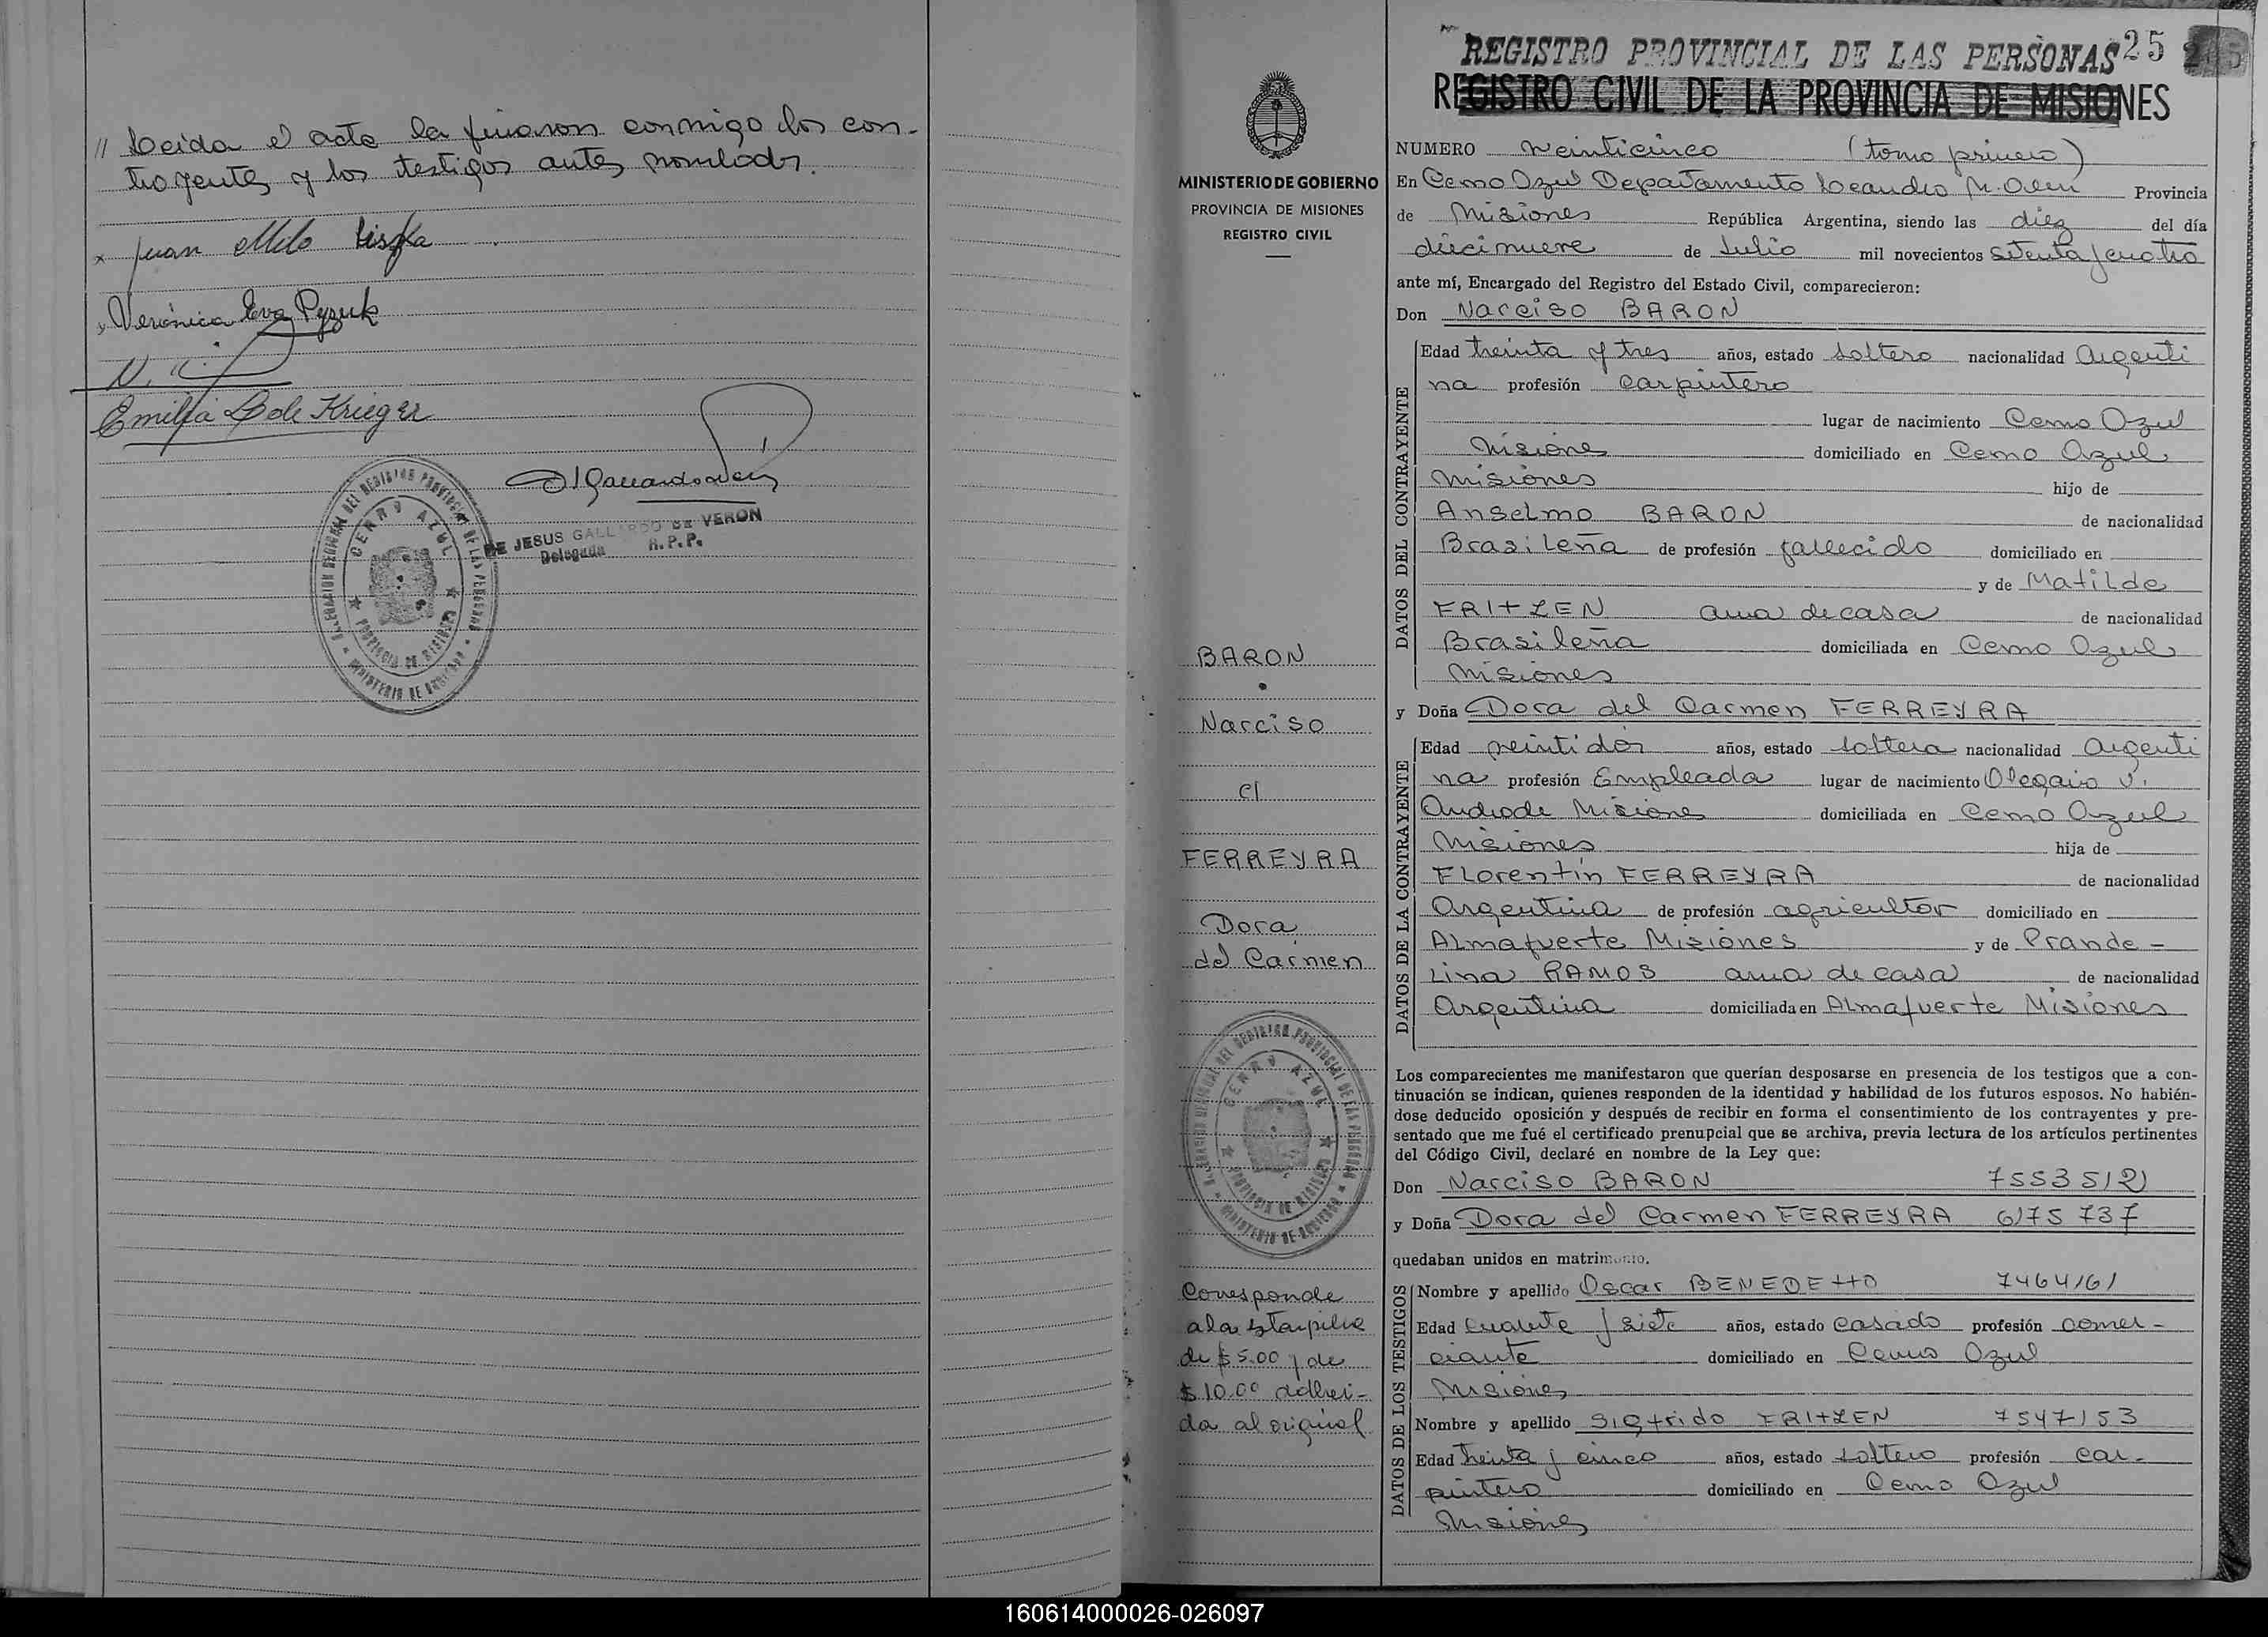 // Leida el acta la firmaron conmigo los con-
trayentes y los testigos antes nombrados.
x Juan Milo Liszka
x Verónica Eva Pyzuk
Emilia L de Krieger
DE JESUS GALLARDO DE VERON
Delegada R.P.P.
CERRO AZUL
PROVINCIA DE MISIONES
MINISTERIO DE GOBIERNO
MINISTERIO DE GOBIERNO
PROVINCIA DE MISIONES
REGISTRO CIVIL
BARON
Narciso
c/
FERREYRA
Dora
del Carmen
CERRO AZUL
PROVINCIA DE MISIONES
MINISTERIO DE GOBIERNO
Corresponde
a la estampilla
de $ 5.00 y de
$ 10.00 adheri-
da al original
REGISTRO PROVINCIAL DE LAS PERSONAS 25
REGISTRO CIVIL DE LA PROVINCIA DE MISIONES
NUMERO veinticinco (tomo primero)
En Cerro Azul Departamento Leandro N. Alem Provincia
de Misiones República Argentina, siendo las diez del día
diecinueve de Julio mil novecientos setenta y cuatro
ante mí, Encargado del Registro del Estado Civil, comparecieron:
Don Narciso BARON
DATOS DEL CONTRAYENTE
Edad treinta y tres años, estado soltero nacionalidad Argenti
na profesión carpintero
lugar de nacimiento Cerro Azul
Misiones domiciliado en Cerro Azul
Misiones hijo de
Anselmo BARON de nacionalidad
Brasileña de profesión fallecido domiciliado en
y de Matilde
FRITZEN ama de casa de nacionalidad
Brasileña domiciliada en Cerro Azul
Misiones
y Doña Dora del Carmen FERREYRA
DATOS DE LA CONTRAYENTE
Edad veintidos años, estado soltera nacionalidad Argenti
na profesión Empleada lugar de nacimiento Olegario V.
Andrade Misiones domiciliada en Cerro Azul
Misiones hija de
Florentín FERREYRA de nacionalidad
Argentina de profesión agricultor domiciliado en
Almafuerte Misiones y de Prande-
lina RAMOS ama de casa de nacionalidad
Argentina domiciliada en Almafuerte Misiones
Los comparecientes me manifestaron que querían desposarse en presencia de los testigos que a con-
tinuación se indican, quienes responden de la identidad y habilidad de los futuros esposos. No habién-
dose deducido oposición y después de recibir en forma el consentimiento de los contrayentes y pre-
sentado que me fué el certificado prenupcial que se archiva, previa lectura de los artículos pertinentes
del Código Civil, declaré en nombre de la Ley que:
Don Narciso BARON 7553512
y Doña Dora del Carmen FERREYRA 6175737
quedaban unidos en matrimonio.
DATOS DE LOS TESTIGOS
Nombre y apellido Oscar BENEDETTO 7464161
Edad cuarenta y siete años, estado casado profesión comer-
ciante domiciliado en Cerro Azul
Misiones
Nombre y apellido Sigfrido FRITZEN 7547153
Edad treinta y cinco años, estado soltero profesión car-
pintero domiciliado en Cerro Azul
Misiones
160614000026-026097